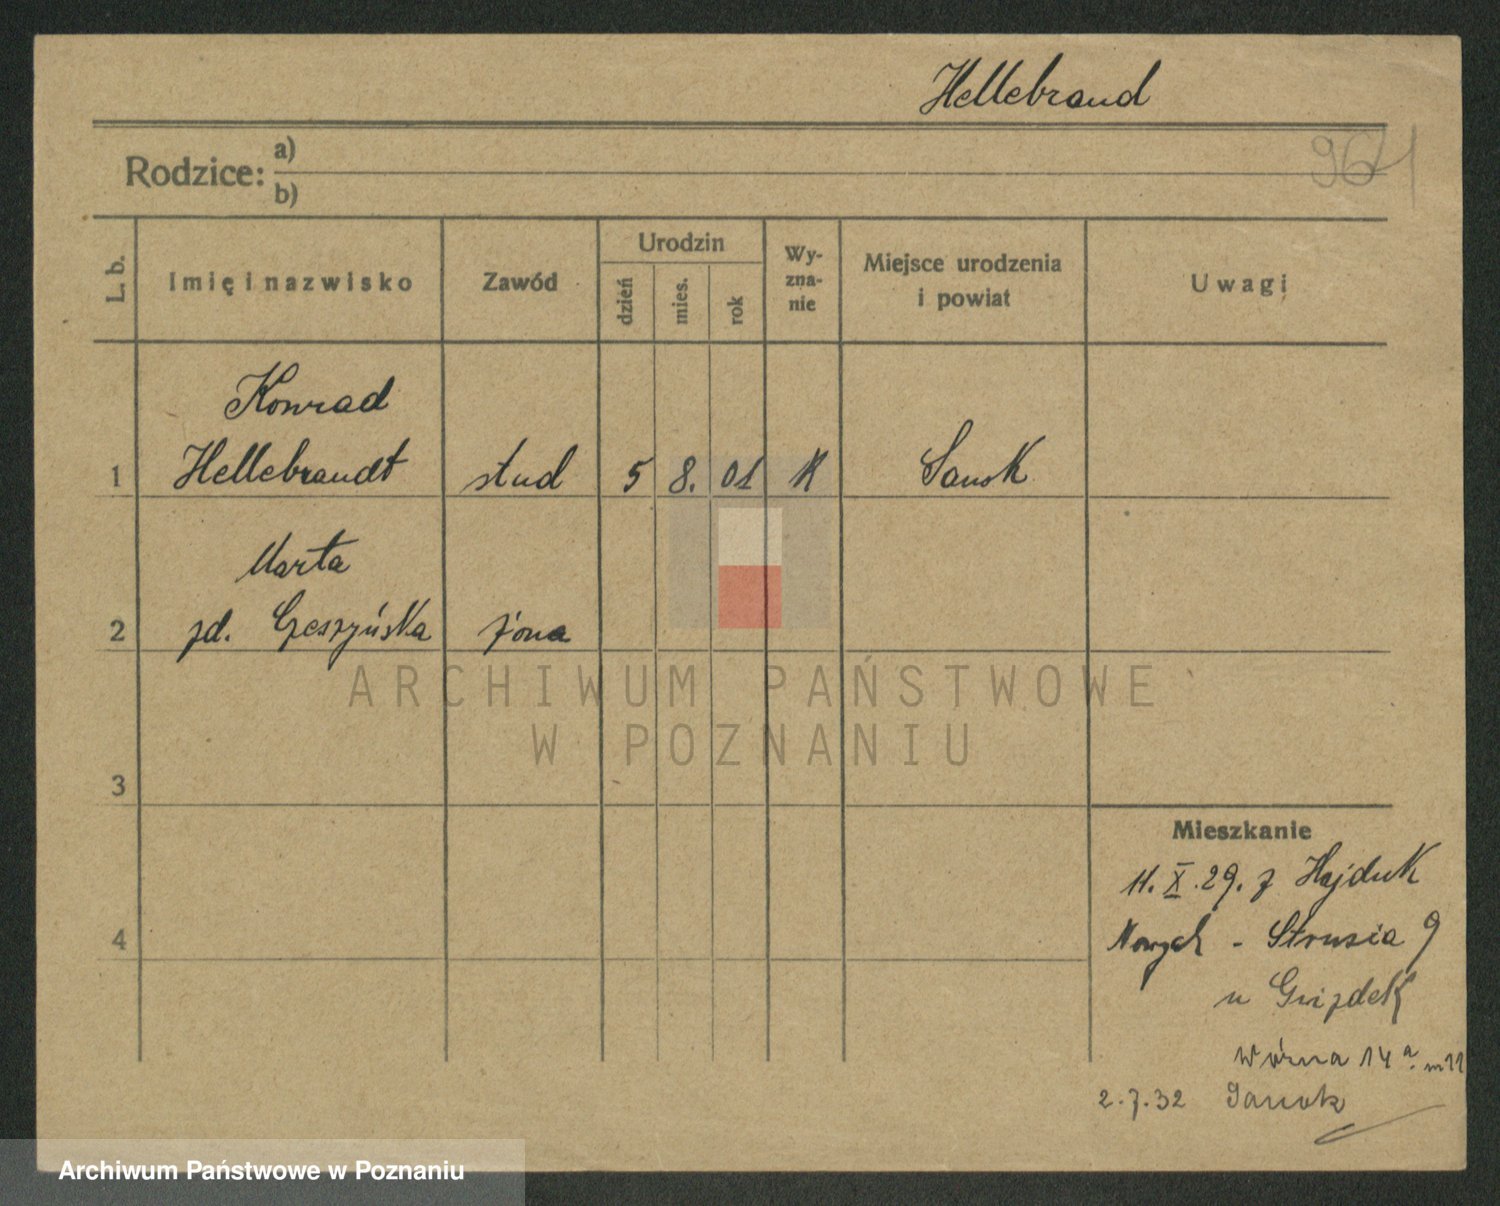 Hellebrand
Rodzice: a)
b)
964
L. b.
Imię i nazwisko
Zawód
Urodzin
dzień
mies.
rok
Wy-
zna-
nie
Miejsce urodzenia
i powiat
Uwagi
Konrad
1 Hellebrandt stud 5 8. 01 K Sanok
Marta
2 zd. Czeszyńska żona
ARCHIWUM PAŃSTWOWE
W POZNANIU
3
Mieszkanie
11. X. 29. z Hajduk
4 Nowych - Strusia 9
u Gwizdek
14 a m 11
2.7.32 Sanok
Archiwum Państwowe w Poznaniu